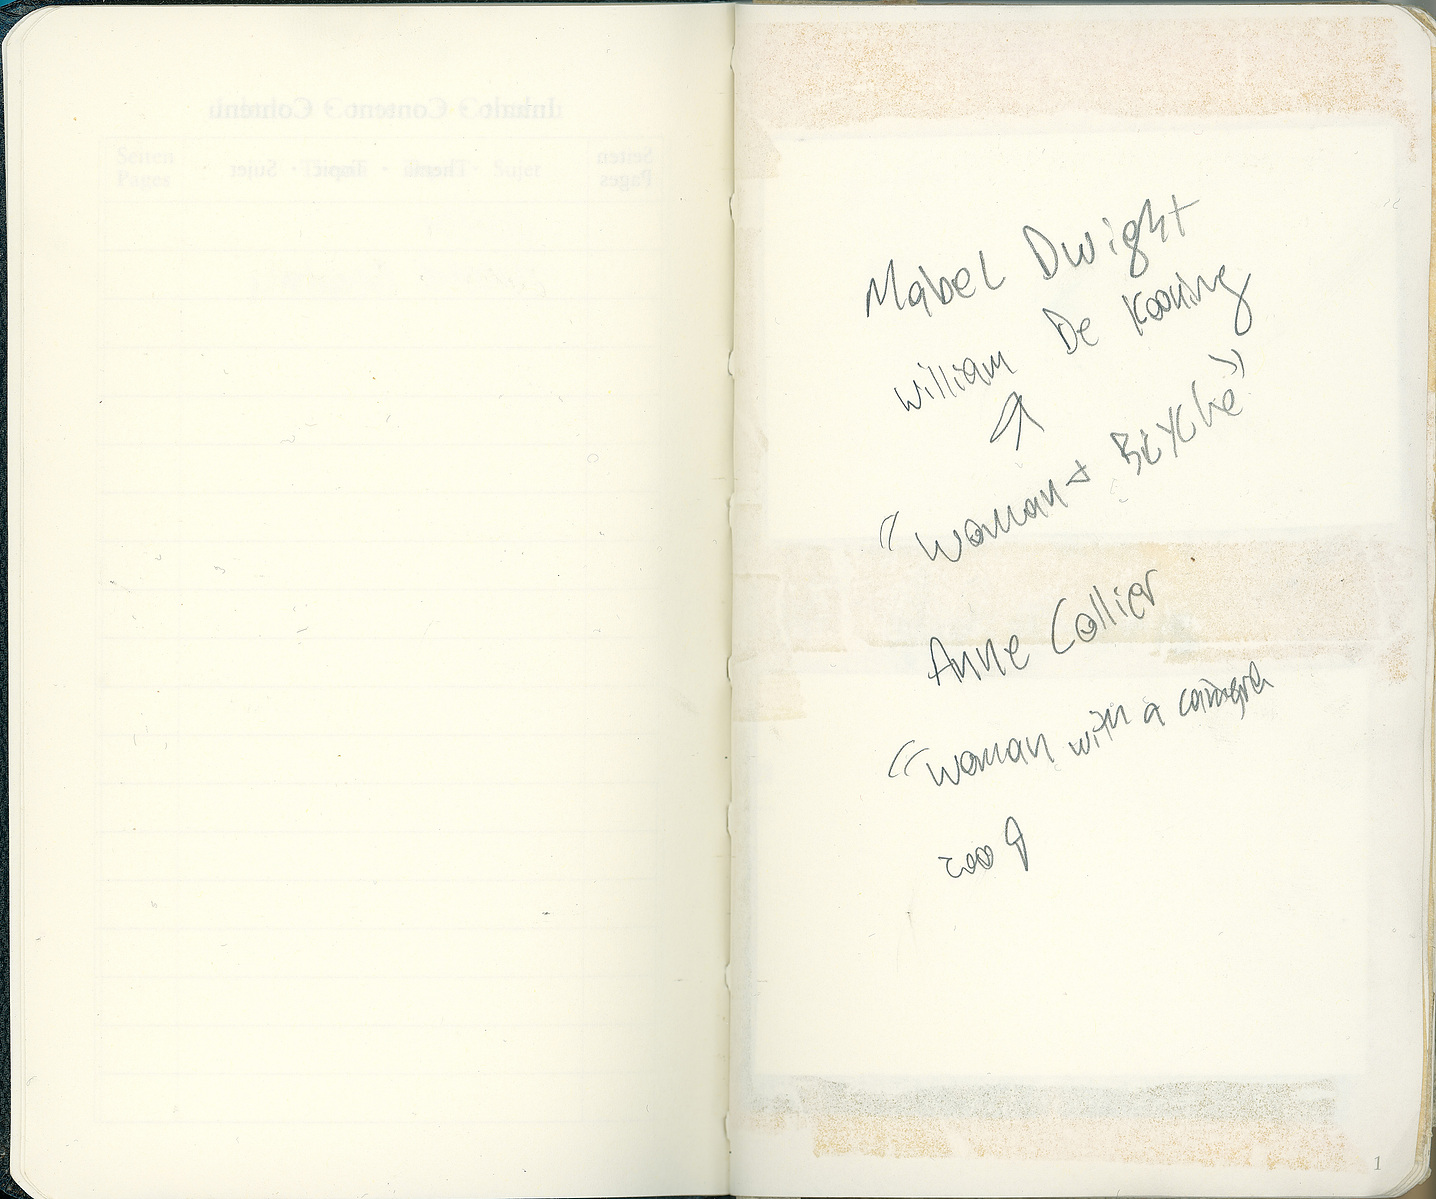 Seiten
Pages
Mabel Dwight
William De Kooning
"Woman + Bicycle"
Anne Collier
"Woman with a camera
2009
1